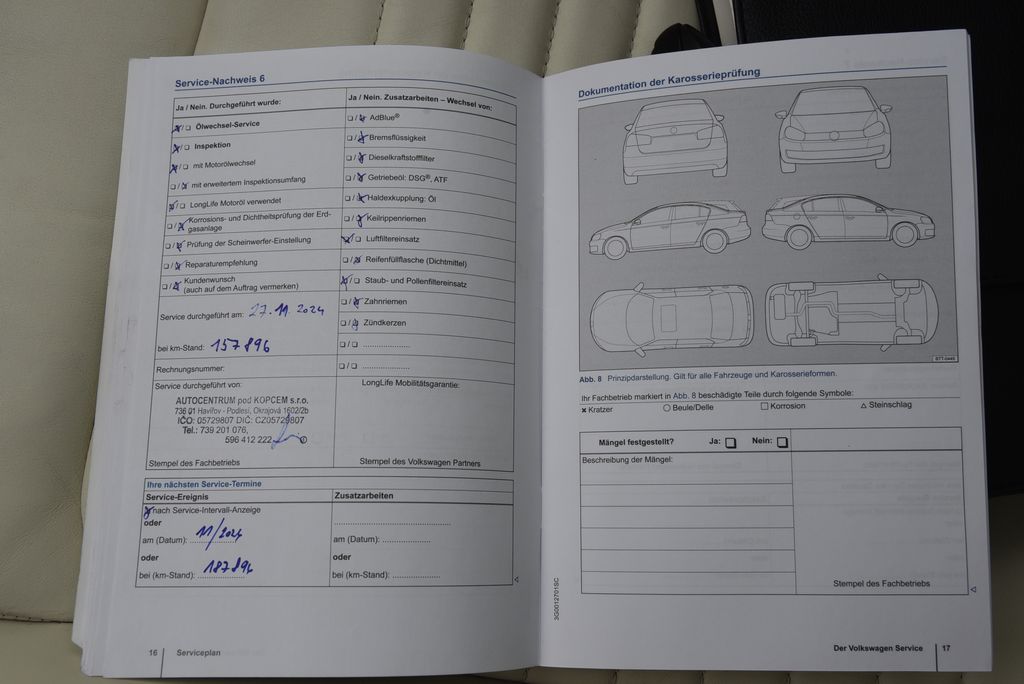 Service-Nachweis 6
Ja / Nein. Durchgeführt wurde:
Ja / Nein. Zusatzarbeiten – Wechsel von:
Ölwechsel-Service
Inspektion
mit Motorölwechsel
mit erweitertem Inspektionsumfang
LongLife Motoröl verwendet
Korrosions- und Dichtheitsprüfung der Erd-
gasanlage
Prüfung der Scheinwerfer-Einstellung
Reparaturempfehlung
Kundenwunsch
(auch auf dem Auftrag vermerken)
AdBlue®
Bremsflüssigkeit
Dieselkraftstofffilter
Getriebeöl: DSG®, ATF
Haldexkupplung: Öl
Keilrippenriemen
Luftfiltereinsatz
Reifenfüllflasche (Dichtmittel)
Staub- und Pollenfiltereinsatz
Zahnriemen
Zündkerzen
Service durchgeführt am: 27.11.2024
bei km-Stand: 157 896
Rechnungsnummer:
Service durchgeführt von:
AUTOCENTRUM pod KOPCEM s.r.o.
736 01 Havířov - Podlesí, Okrajová 1602/2b
IČO: 05729807 DIČ: CZ05729807
Tel.: 739 201 076,
596 412 222
Stempel des Fachbetriebs
LongLife Mobilitätsgarantie:
Stempel des Volkswagen Partners
Ihre nächsten Service-Termine
Service-Ereignis
Zusatzarbeiten
nach Service-Intervall-Anzeige
oder
am (Datum): 11/2024
oder
bei (km-Stand): 187 896
am (Datum):
oder
bei (km-Stand):
16 Serviceplan
Dokumentation der Karosserieprüfung
B7T-0445
Abb. 8 Prinzipdarstellung. Gilt für alle Fahrzeuge und Karosserieformen.
Ihr Fachbetrieb markiert in Abb. 8 beschädigte Teile durch folgende Symbole:
Kratzer Beule/Delle Korrosion Steinschlag
Mängel festgestellt? Ja: Nein:
Beschreibung der Mängel:
Stempel des Fachbetriebs
3G0012701SC
Der Volkswagen Service 17